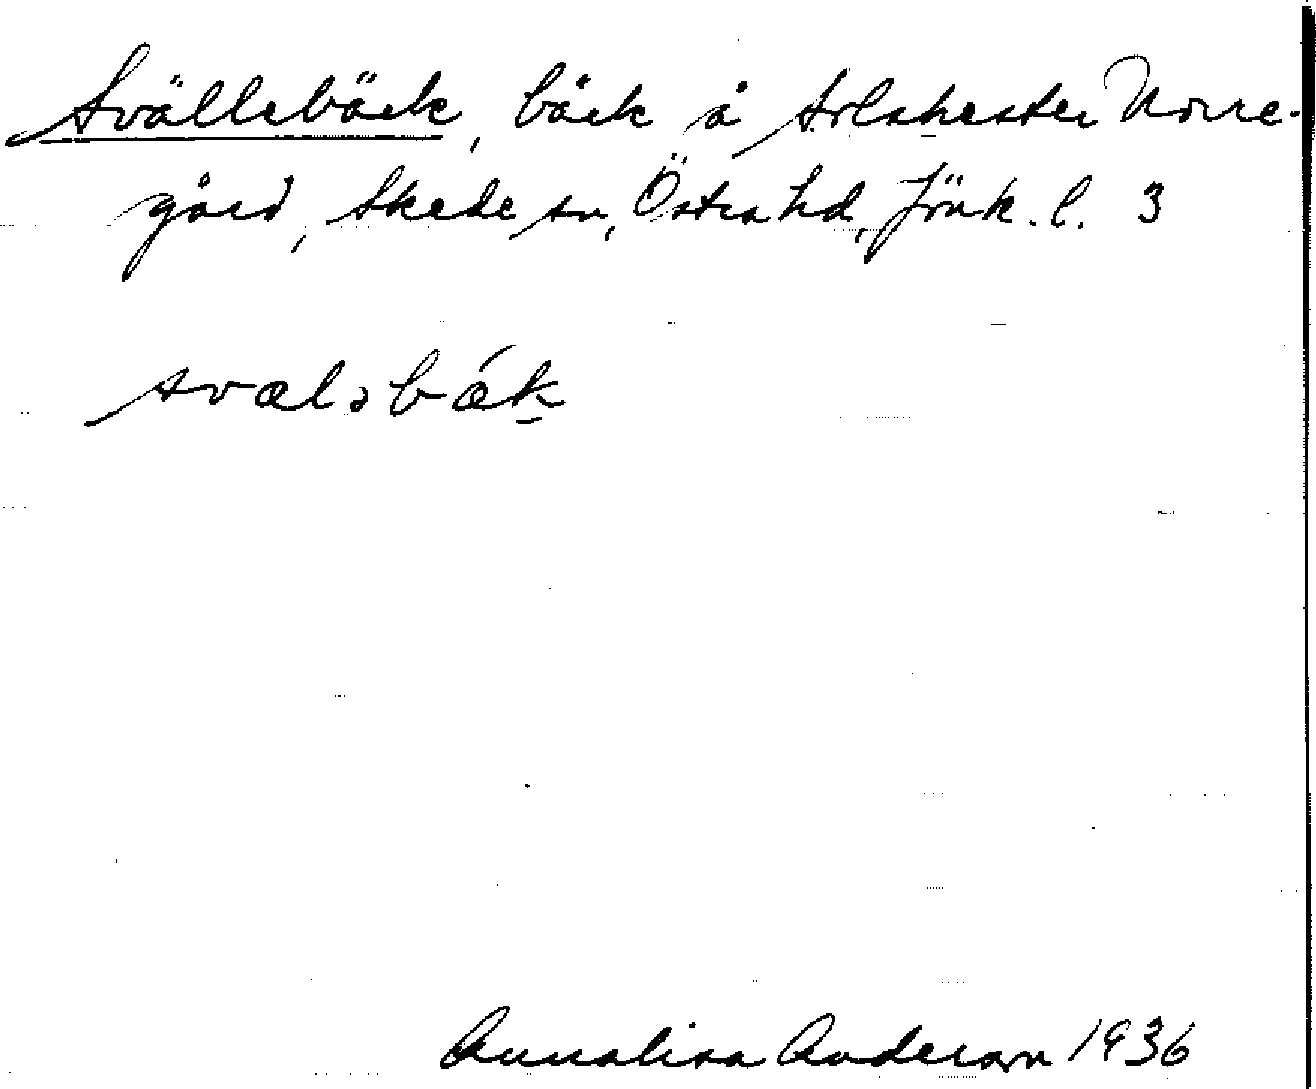 Svällebäck, bäck å Solshester Norre-
gård, Skede sn, Östra hd, Jönk. l. 3
svæləbǽk
Annalisa Anderson 1936